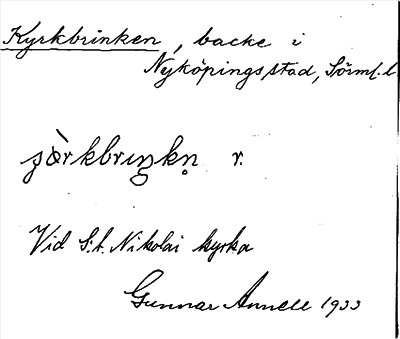 Kyrkbrinken, backe i
Nyköpings stad, Sörml. l.
r.
Vid S:t. Nikolai kyrka
Gunnar Annell 1933